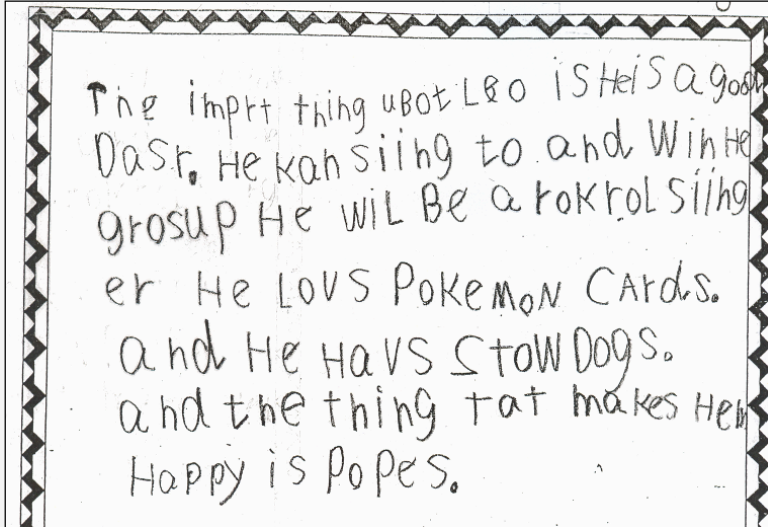 The imprt thing uBot LEO iS HeiS a good
DaSr. He kan siing to and Win He
grosup He wiL Be a rokroL siing
er He Lovs PoKeMoN CArds.
and He Havs StoW DOgs.
and the thing tat makes Hem
Happy is PoPes.